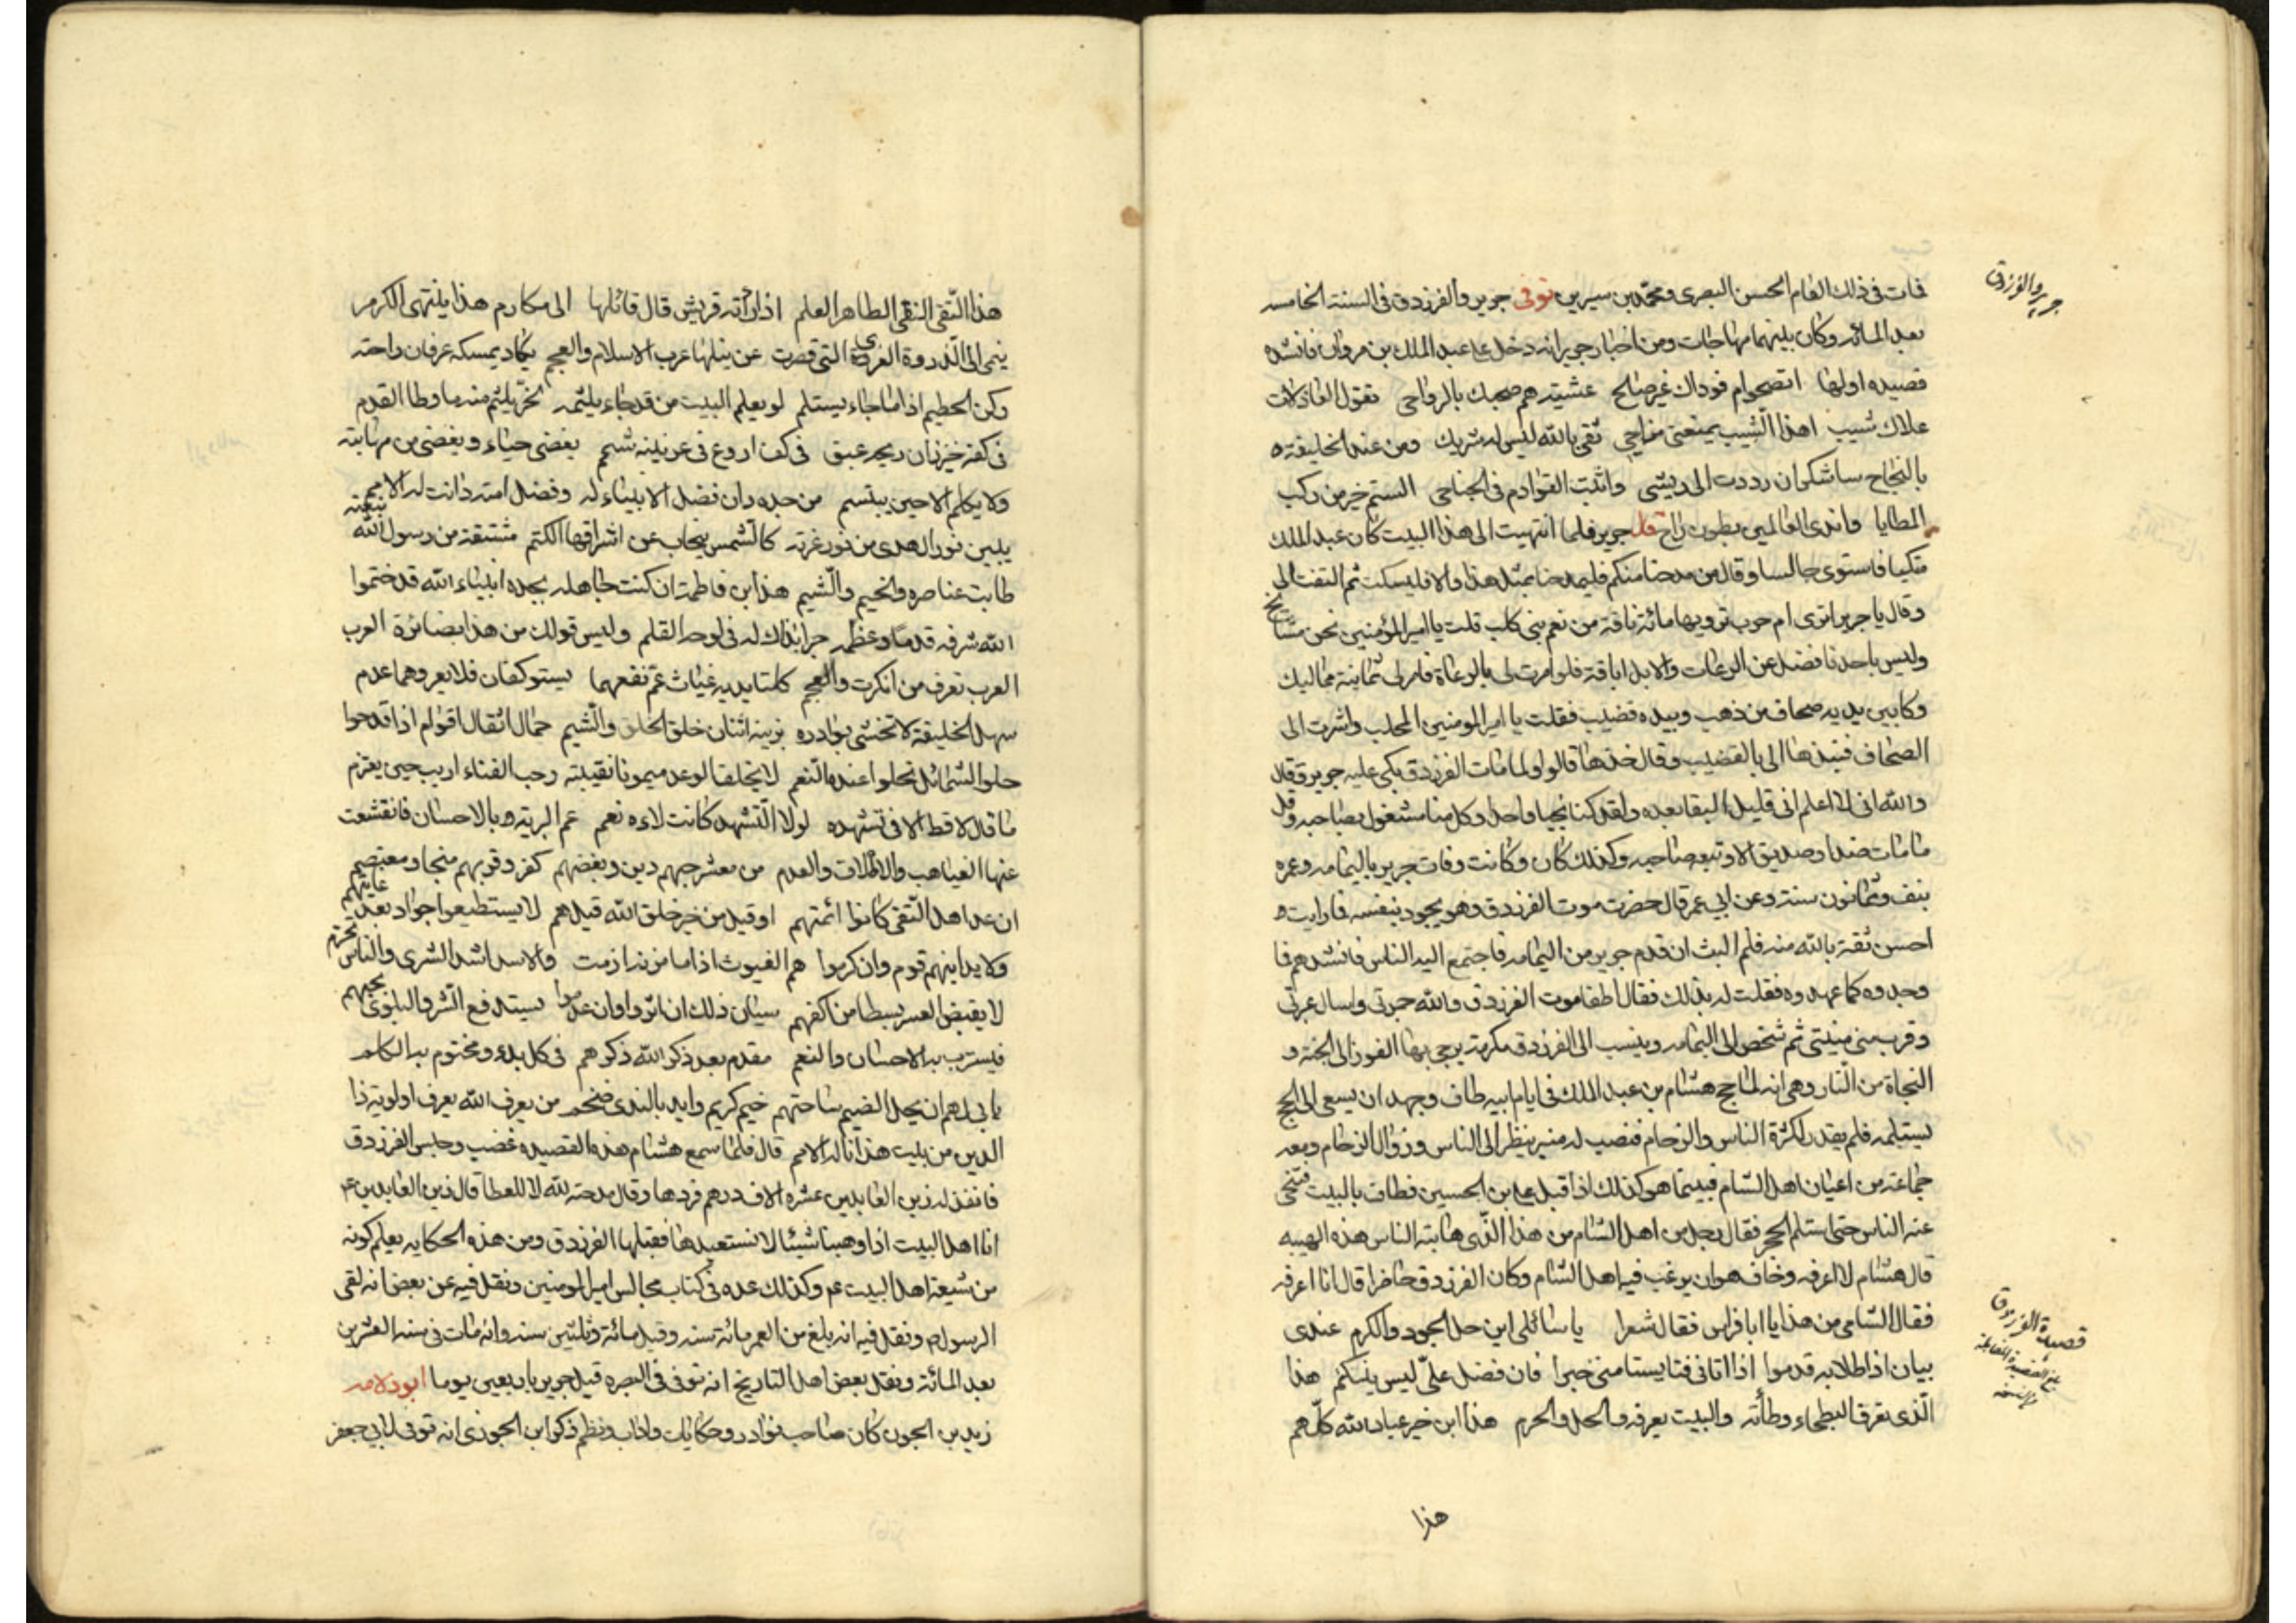 جرير والفرزدق
فمات فى ذلك العام الحسن البصرى ومحمد بن سيرين توفى جرير والفرزدق فى السنة الخامسه
بعد المائه وكان بينهما مهاجات ومن اخبار جرير انه دخل على عبد الملك بن مروان فانشده
قصيده اولها اتصحوام فوداك غير صالح عشيته هم صحبك بالرواحى تقول العاذلات
علاك شيب اهذا الشيب يمنعنى مزاحى ثقى بالله ليس له شريك ومن عند الخليفة
بالنجاح ساشكران رددت الى ريشى واثبت القوادم فى الجناحى الستم خير من ركب
المطايا واندى العالمين بطون راح قال جرير فلما انتهيت الى هذا البيت كان عبد الملك
متكيا فاستوى جالسا وقال من مدحنا منكم فليمدحنا بمثل هذا والا فليسكت ثم التفت الى
وقال يا جرير اترى ام حرب ترويها مائة ناقة من نعم بنى كلب قلت يا امير المؤمنين نحن مشايخ
وليس باحدنا فضل عن الرعات والابل اباقة فلو امرت لى بالرعاة فامر لى ثمانية مماليك
وكان بين يديه صحاف من ذهب وبيده قضيب فقلت يا امير المومنين المحلب واشرت الى
الصحاف فنبذها الى بالقضيب وقال خذها قالوا ولما مات الفرزدق بكى عليه جرير وقال
والله انى لا اعلم انى قليل البقا بعده ولقد كنا نجيا واحدا وكل منا مشغول بصاحبه وقل
ما مات ضد او صديق الا وتبعه صاحبه وكذلك كان وكانت وفات جرير باليمامه وعمره
نيف وثمانون سنة وعن ابى عمر قال حضرت موت الفرزدق وهو يجود بنفسه فما رايت
احسن ثقة بالله منه فلم البث ان قدم جرير من اليمامه فاجتمع اليه الناس فانشدهم فما
وجدوه كما عهدوه فقلت له بذلك فقال اطفا موت الفرزدق والله جمرتى واسال عبرتى
وقرب منى منيتى ثم شخص الى اليمامه وينسب الى الفرزدق مكرمة يرجى بها الفوز الى الجنة و
النجاة من النار وهى انه لما حج هشام بن عبد الملك فى ايام ابيه طاف وجهد ان يسعى الى الحج
يستلمه فلم يقدر لكثرة الناس والزحام فنصب له منبر ينظر الى الناس وزوال الزحام ومعه
جماعة من اعيان اهل الشام فبينما هو كذلك اذ اقبل على بن الحسين فطاف بالبيت فتنحى
عنه الناس حتى استلم الحجر فقال رجل من اهل الشام من هذا الذى هابته الناس هذه الهيبه
قال هشام لا اعرفه وخاف هو ان يرغب فيه اهل الشام وكان الفرزدق حاضرا قال انا اعرفه
فقال الشامى من هذا يا ابا فراس فقال شعرا يا سائلى اين حل الجود والكرم عندى
قصيدة الفرزدق
بيان اذا طلابه قدموا اذا اتانى فتا يستامنى خبرا فان فضل على ليس ينكتم هذا
الذى تعرف البطحاء وطأته والبيت يعرفه والحل والحرم هذا ابن خير عباد الله كلهم
هذا
هذا التقى النقى الطاهر العلم اذا راته قريش قال قائلها الى مكارم هذا ينتهى الكرم
ينمى الى الذروة العز التى قصرت عن نيلها عرب الاسلام والعجم يكاد يمسكه عرفان راحته
ركن الحطيم اذا ما جاء يستلم لو يعلم البيت من قد جاء يلثمه لخر يلثم منه ما وطا القدم
فى كفه خيزران ريحه عبق فى كف اروع فى عرنينه شمم يغضى حياء ويغضى من مهابته
ولا يكلم الا حين يبتسم من جده دان فضل الانبياء له وفضل امته دانت له الامم
يبين نور الهدى من نور غرته كالشمس ينجاب عن اشراقها الكتم مشتقة من رسول الله نبعته
طابت عناصره والخيم والشيم هذا ابن فاطمة ان كنت جاهله بجده انبياء الله قد ختموا
الله شرفه قدما وعظمه جرا بذاك له فى لوحه القلم وليس قولك من هذا بضائره العرب
العرب تعرف من انكرت والعجم كلتا يديه غياث عم نفعهما يستوكفان فلا يعروهما عدم
سهل الخليقة لا تخشى بوادره يزينه اثنان خلق الخلق والشيم حمال اثقال اقوام اذا قدحوا
حلو الشمائل تحلوا عنده النعم لا يخلف الوعد ميمونا نقيبته رحب الفناء اريب حين يعتزم
ما قال لا قط الا فى تشهده لولا التشهد كانت لاءه نعم عم البريه بالاحسان فانقشعت
عنها الغياهب والاملاق والعدم من معشر حبهم دين وبغضهم كفر وقربهم منجا ومعتصم
ان عد اهل التقى كانوا ائمتهم او قيل من خير خلق الله قيل هم لا يستطيع جواد بعد غايتهم
ولا يدانيهم قوم وان كرموا هم الغيوث اذا ما ازمة ازمت والاسد اسد الشرى والناس
لا يقبض العسر بسطا من اكفهم سيان ذلك ان اثروا وان عدموا يستدفع الشر والبلوى بحبهم
فيسترب به الاحسان والنعم مقدم بعد ذكر الله ذكرهم فى كل بدء ومختوم به الكلم
يابى لهم ان يحل الضيم ساحتهم خيم كريم وايد بالندى من يعرف الله يعرف اولوية ذا
الدين من بيت هذا ناله الامم قال فلما سمع هشام هذه القصيده غضب وحبس الفرزدق
فانفذ له زين العابدين عشره الاف درهم فردها وقال مدحته لله لا للعطا قال زين العابدين ع
انا اهل البيت اذا وهبنا شيئا لا نستعيدها فقبلها الفرزدق ومن هذه الحكايه يعلم كونه
من شيعة اهل البيت ع وكذلك عده فى كتاب مجالس امير المومنين ونقل فيه عن بعض انه لقى
الرسول ونقل فيه انه بلغ من العمر مائة سنه وقيل مائة وثلثين سنه وانه مات فى سنه العشرين
بعد المائة ونقل بعض اهل التاريخ انه توفى فى البصره قبل جرير باربعين يوما ابو دلامه
زيد بن الجون كان صاحب نوادر وحكايات واداب ونظم ذكر ابن الجوزى انه توفى لابى جعفر